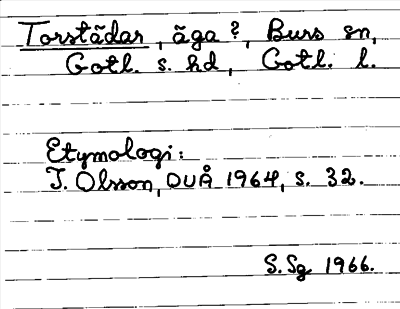 Torstädar, äga?, Burs sn,
Gotl. s. hd, Gotl. l.
Etymologi:
I. Olsson, DUÅ 1964, s. 32.
S.Sg 1966.